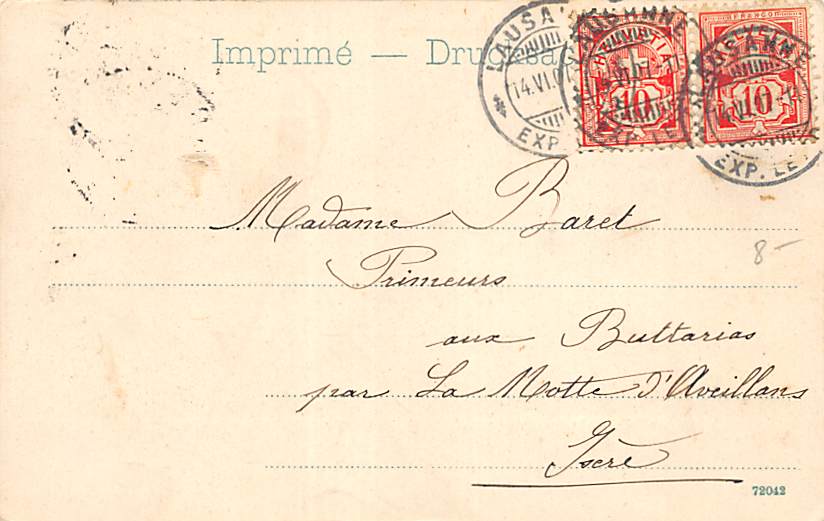 Imprimé — Drucksac
LAUSANNE
14.VI.07
EXP. LE
LAUSANNE
EXP. LE
LAUSANNE
EXP. LE
10
10
Madame Baret
Primeurs
aux Buttarias
par La Motte d'Aveillans
Isère
8-
72042